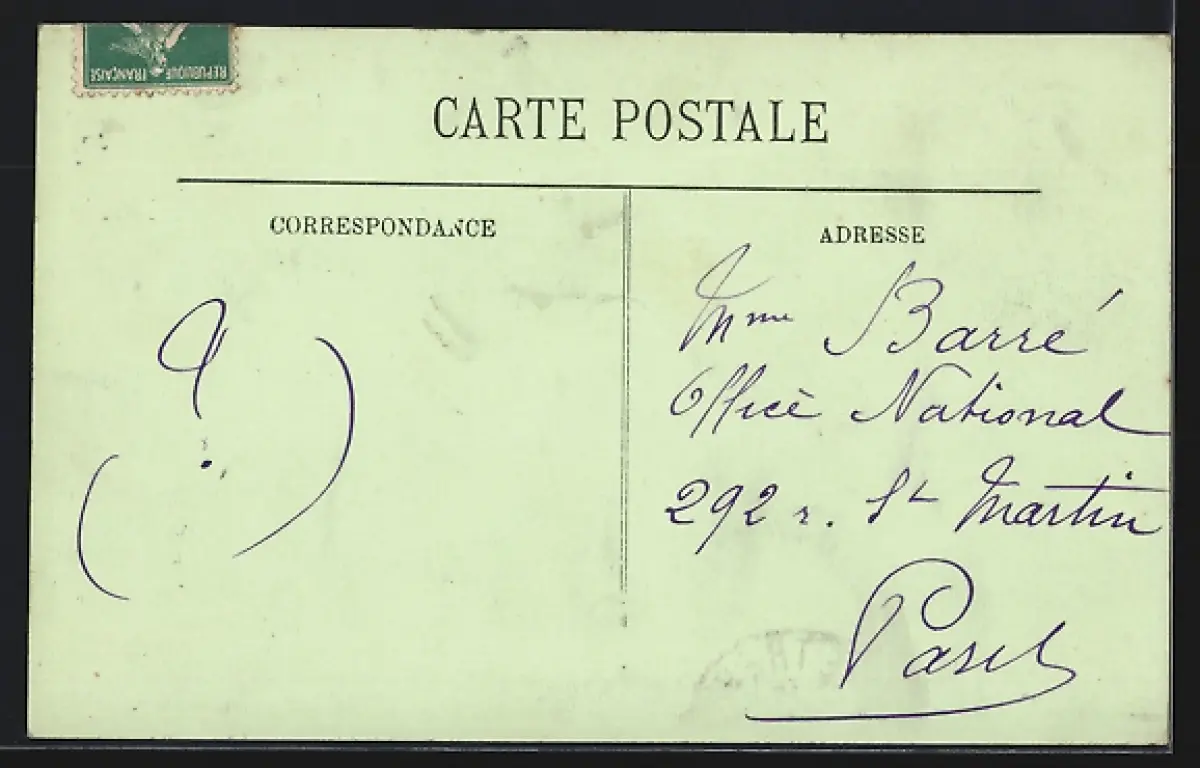 REPUBLIQUE FRANÇAISE
CARTE POSTALE
CORRESPONDANCE
( ? )
ADRESSE
Mme Barré
Office National
292 r. St Martin
Paris